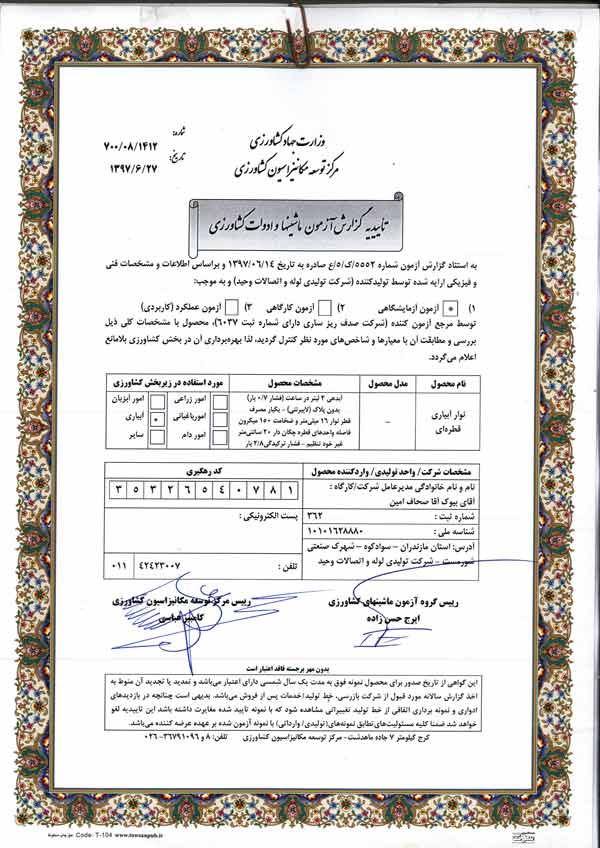 وزارت جهاد کشاورزی
مرکز توسعه مکانیزاسیون کشاورزی
شماره: ۷۰۰/۰۸/۱۴۱۲
تاریخ: ۱۳۹۷/۶/۲۷
تاییدیه گزارش آزمون ماشینها و ادوات کشاورزی
به استناد گزارش آزمون شماره ۵۵۵۲/ک/۵/ع صادره به تاریخ ۱۳۹۷/۰۶/۱۴ و براساس اطلاعات و مشخصات فنی
و فیزیکی ارایه شده توسط تولیدکننده (شرکت تولیدی لوله و اتصالات وحید) و به موجب:
۱) آزمون آزمایشگاهی * ۲) آزمون کارگاهی ۳) آزمون عملکرد (کاربردی)
توسط مرجع آزمون کننده (شرکت صدف ریز ساری دارای شماره ثبت ۶۰۳۷)، محصول با مشخصات کلی ذیل
بررسی و مطابقت آن با معیارها و شاخص‌های مورد نظر کنترل گردید، لذا بهره‌برداری آن در بخش کشاورزی بلامانع
اعلام می‌گردد.
نام محصول مدل محصول مشخصات محصول مورد استفاده در زیربخش کشاورزی
نوار آبیاری قطره‌ای
–
آبدهی ۲ لیتر در ساعت (فشار ۰/۷ بار)
بدون پلاک (لابیرنتی) – یکبار مصرف
قطر نوار ۱۶ میلی‌متر و ضخامت ۱۵۰ میکرون
فاصله واحدهای قطره چکان دار ۲۰ سانتی‌متر
غیر خود تنظیم – فشار ترکیدگی ۲/۸ بار
امور زراعی امور آبزیان
امور باغبانی آبیاری *
امور دام سایر
مشخصات شرکت/ واحد تولیدی/ واردکننده محصول
نام و نام خانوادگی مدیرعامل شرکت/کارگاه :
آقای بیوک آقا صحاف امین
شماره ثبت : ۳۶۲
شناسه ملی : ۱۰۱۰۱۶۲۸۸۸۰
آدرس: استان مازندران – سوادکوه – شهرک صنعتی
شورمست – شرکت تولیدی لوله و اتصالات وحید
کد رهگیری
۳ ۵ ۳ ۲ ۶ ۵ ۴ ۰ ۷ ۸ ۱
پست الکترونیکی :
تلفن : ۴۲۴۲۳۰۰۷ ۰۱۱
رییس گروه آزمون ماشینهای کشاورزی
ایرج حسن زاده
رییس مرکز توسعه مکانیزاسیون کشاورزی
کامبیز عباسی
بدون مهر برجسته فاقد اعتبار است
این گواهی از تاریخ صدور برای محصول نمونه فوق به مدت یک سال شمسی دارای اعتبار می‌باشد و تمدید یا تجدید آن منوط به
اخذ گزارش سالانه مورد قبول از شرکت بازرسی، خط تولید/خدمات پس از فروش می‌باشد. بدیهی است چنانچه در بازدیدهای
ادواری و نمونه برداری اتفاقی از خط تولید تغییراتی مشاهده شود که با نمونه تایید شده مغایرت داشته باشد این تاییدیه لغو
خواهد شد ضمنا کلیه مسئولیت‌های تطابق نمونه‌های (تولیدی/ وارداتی) با نمونه آزمون شده بر عهده عرضه کننده می‌باشد.
کرج کیلومتر ۷ جاده ماهدشت – مرکز توسعه مکانیزاسیون کشاورزی تلفن: ۸ و ۳۶۷۹۱۰۹۶–۰۲۶
Code: T-104 www.towsenpub.ir